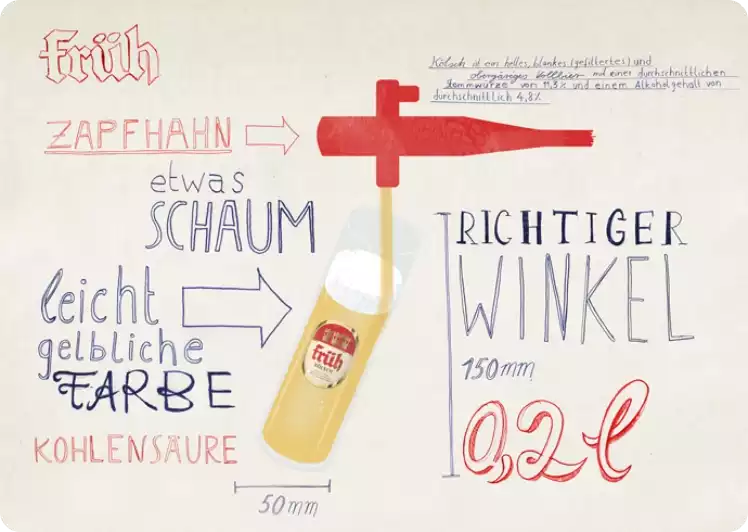 früh
Kölsch ist ein helles, blankes (gefiltertes) und
obergäriges Vollbier mit einer durchschnittlichen
Stammwürze von 11,3% und einem Alkoholgehalt von
durchschnittlich 4,8%
ZAPFHAHN
etwas
SCHAUM
RICHTIGER
WINKEL
leicht
gelbliche
FARBE
früh
KÖLSCH
150mm
0,2l
KOHLENSÄURE
50mm